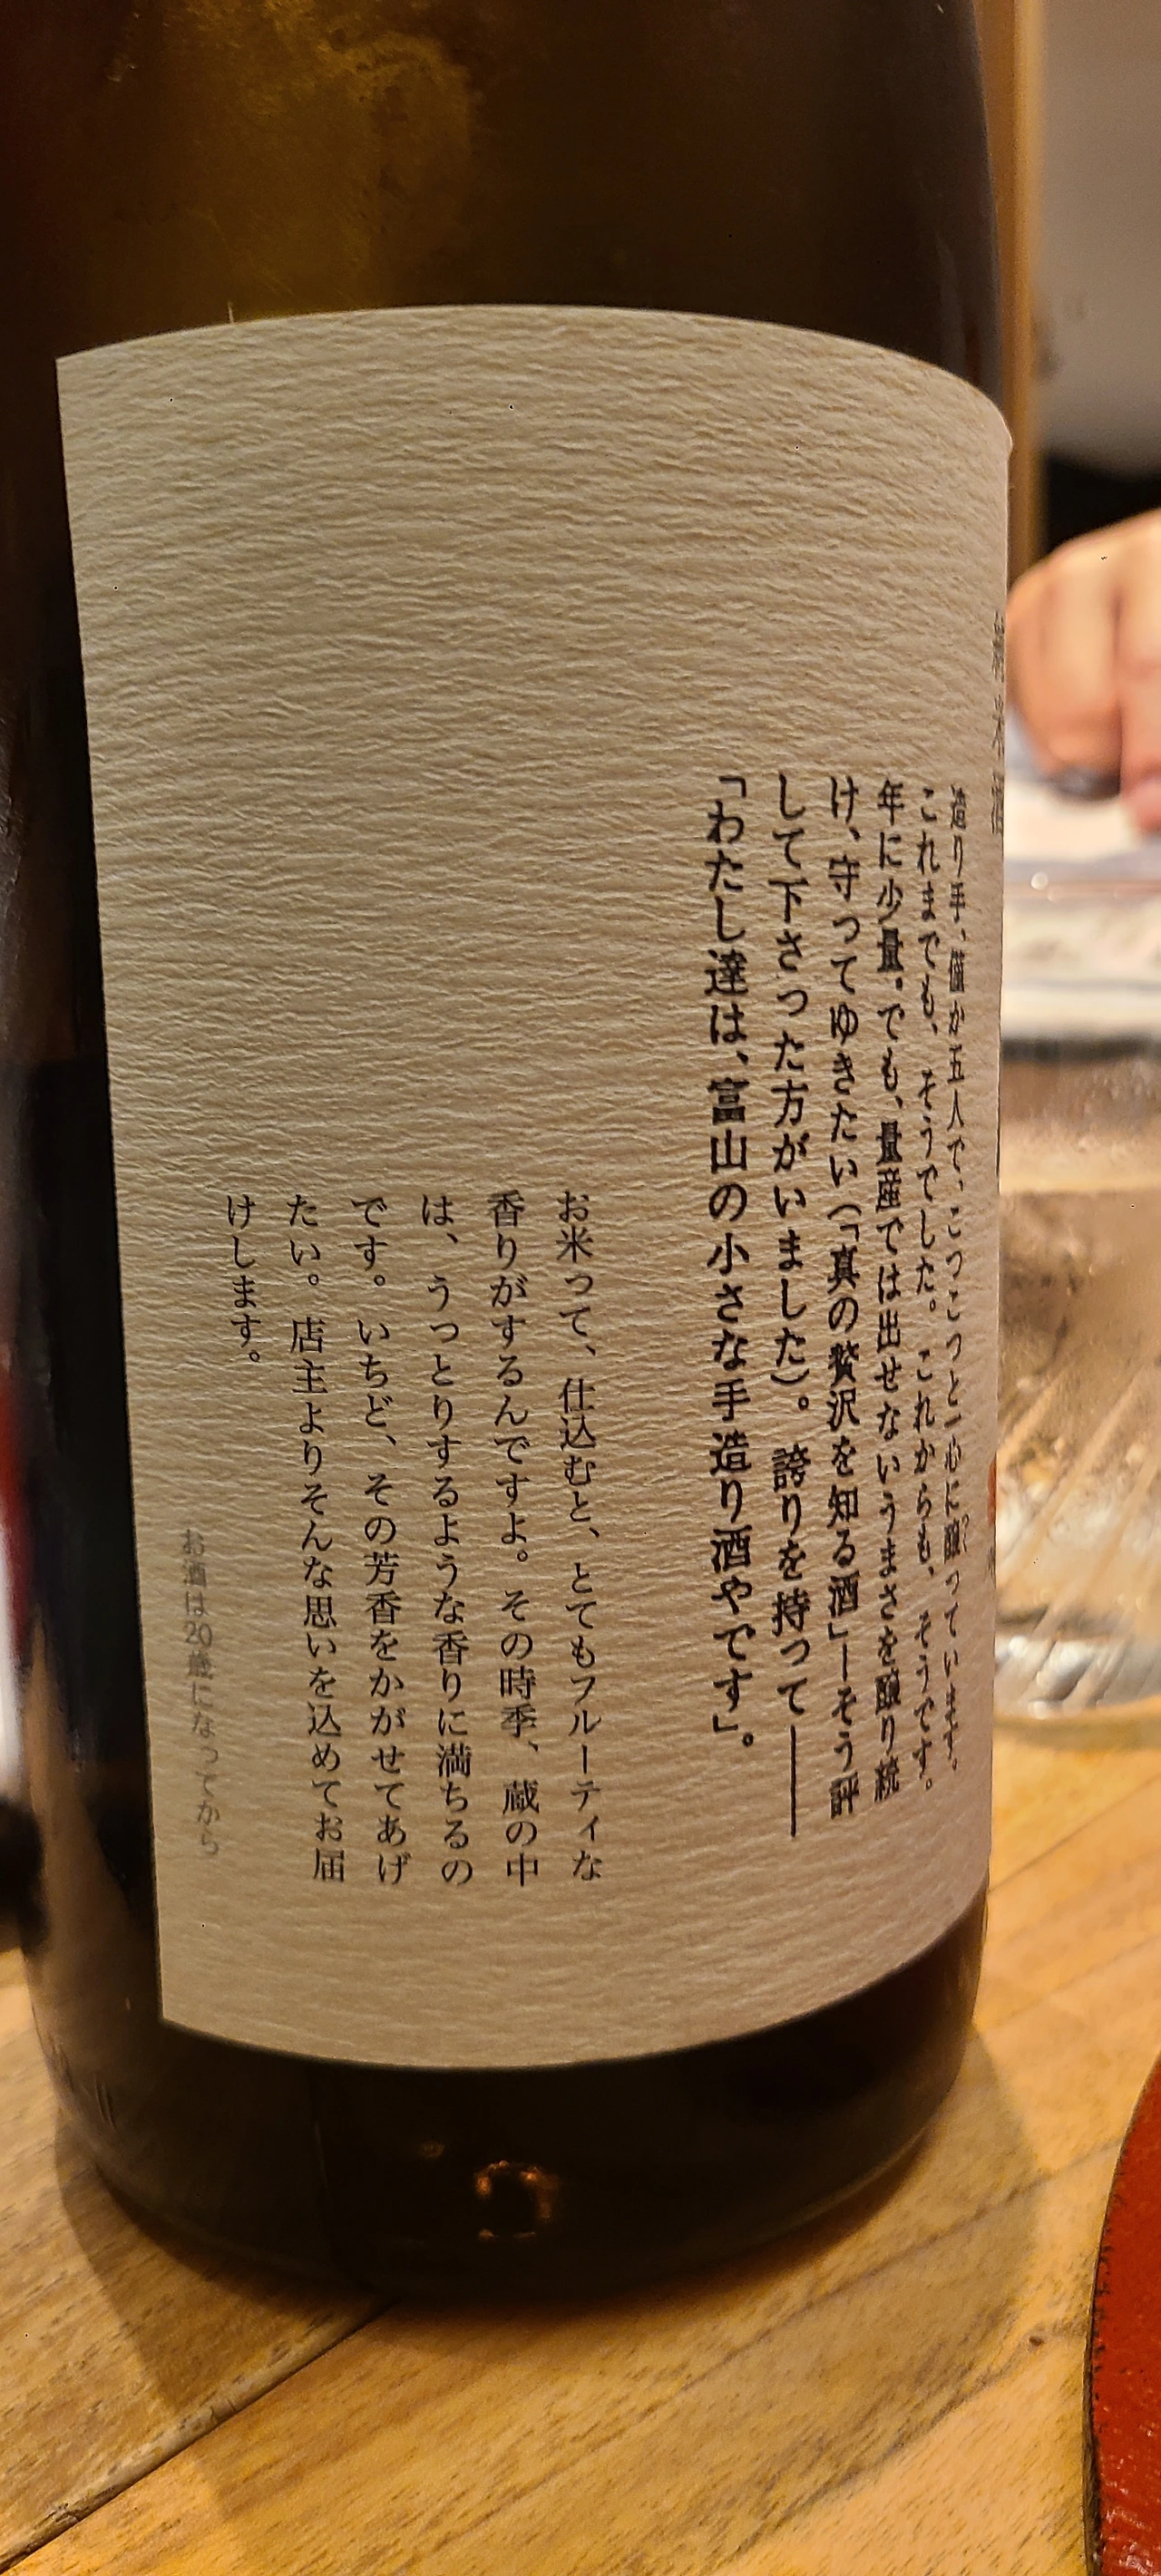 純米酒
造り手、僅か五人で、こつこつと一心に醸っています。
これまでも、そうでした。これからも、そうです。
年に少量。でも、量産では出せないうまさを醸り続
け、守ってゆきたい(「真の贅沢を知る酒」—そう評
して下さった方がいました)。誇りを持って――
「わたし達は、富山の小さな手造り酒やです」。
お米って、仕込むと、とてもフルーティな
香りがするんですよ。その時季、蔵の中
は、うっとりするような香りに満ちるの
です。いちど、その芳香をかがせてあげ
たい。店主よりそんな思いを込めてお届
けします。
お酒は20歳になってから